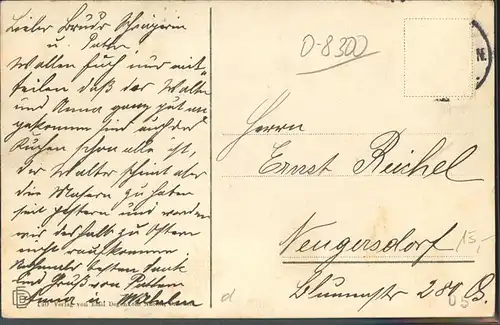 Lieber Bruder Schwägerin
u. Paten
Wollen Euch nur mit-
teilen daß der Walter
und Anna ganz gut an
gekommen sind auch der
Kuchen schon alle ist,
der Walter scheint aber
die Masern zu haben
seit gestern und werden
wir deshalb zu Ostern
nicht raufkommen
Nochmals besten Dank
und Gruß von Paten
Anna u.
Verlag von
D-8300
N.
Herrn
Ernst Reichel
Neugersdorf
15,-
Blumenstr 280 B.
d